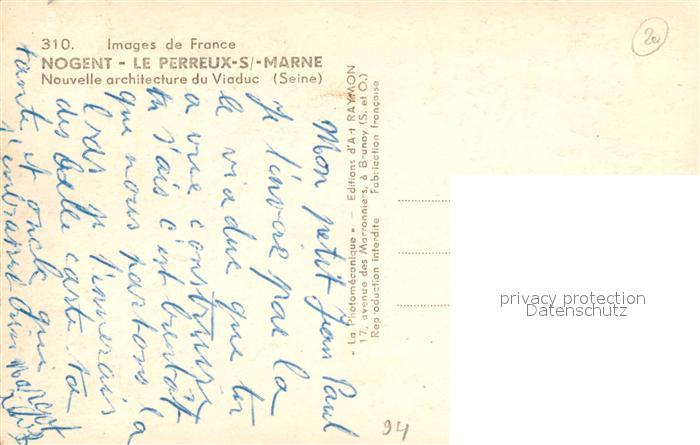 310. Images de France
NOGENT - LE PERREUX-S/-MARNE
Nouvelle architecture du Viaduc (Seine)
20
Mon petit Jean Paul
Je t'envoie pas la
le viaduc que tu
a vue construire
tu s'ais c'est bientôt
que nous partons la
bas je t'enverrais
des belle carte. ta
tante et oncle qui
t'embrasse
- La Photomécanique - - Editions d'Art RAYMON
17, avenue des Marronniers, à Brunoy (S. et O.)
Reproduction interdite Fabrication française
privacy protection
Datenschutz
94